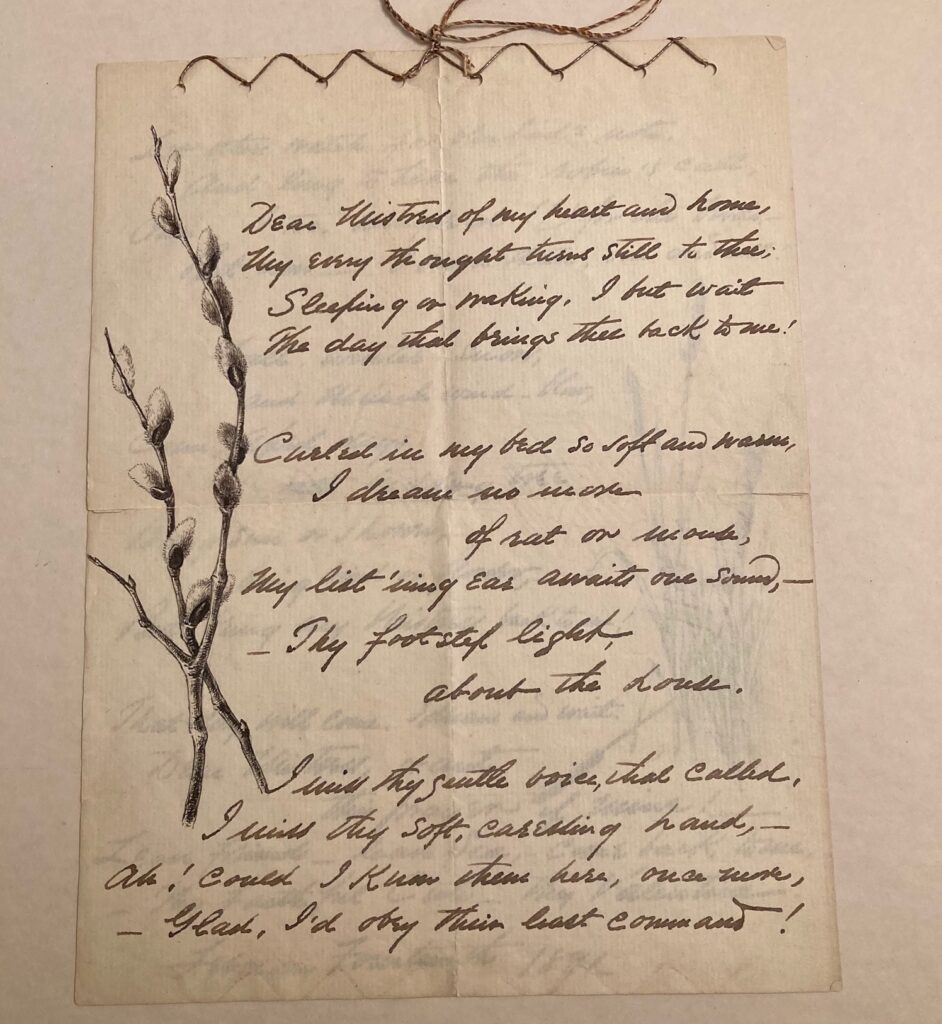 Dear Mistress of my heart and home,
My every thought turns still to thee;
Sleeping or waking, I but wait
The day that brings thee back to me!
Curled in my bed so soft and warm,
I dream no more
of rat or mouse,
My list'ning ear awaits one sound,—
— Thy footstep light,
about the house.
I miss thy gentle voice, that called,
I miss thy soft, caressing hand,—
Ah! could I know them here, once more,
— Glad, I'd obey their least command!